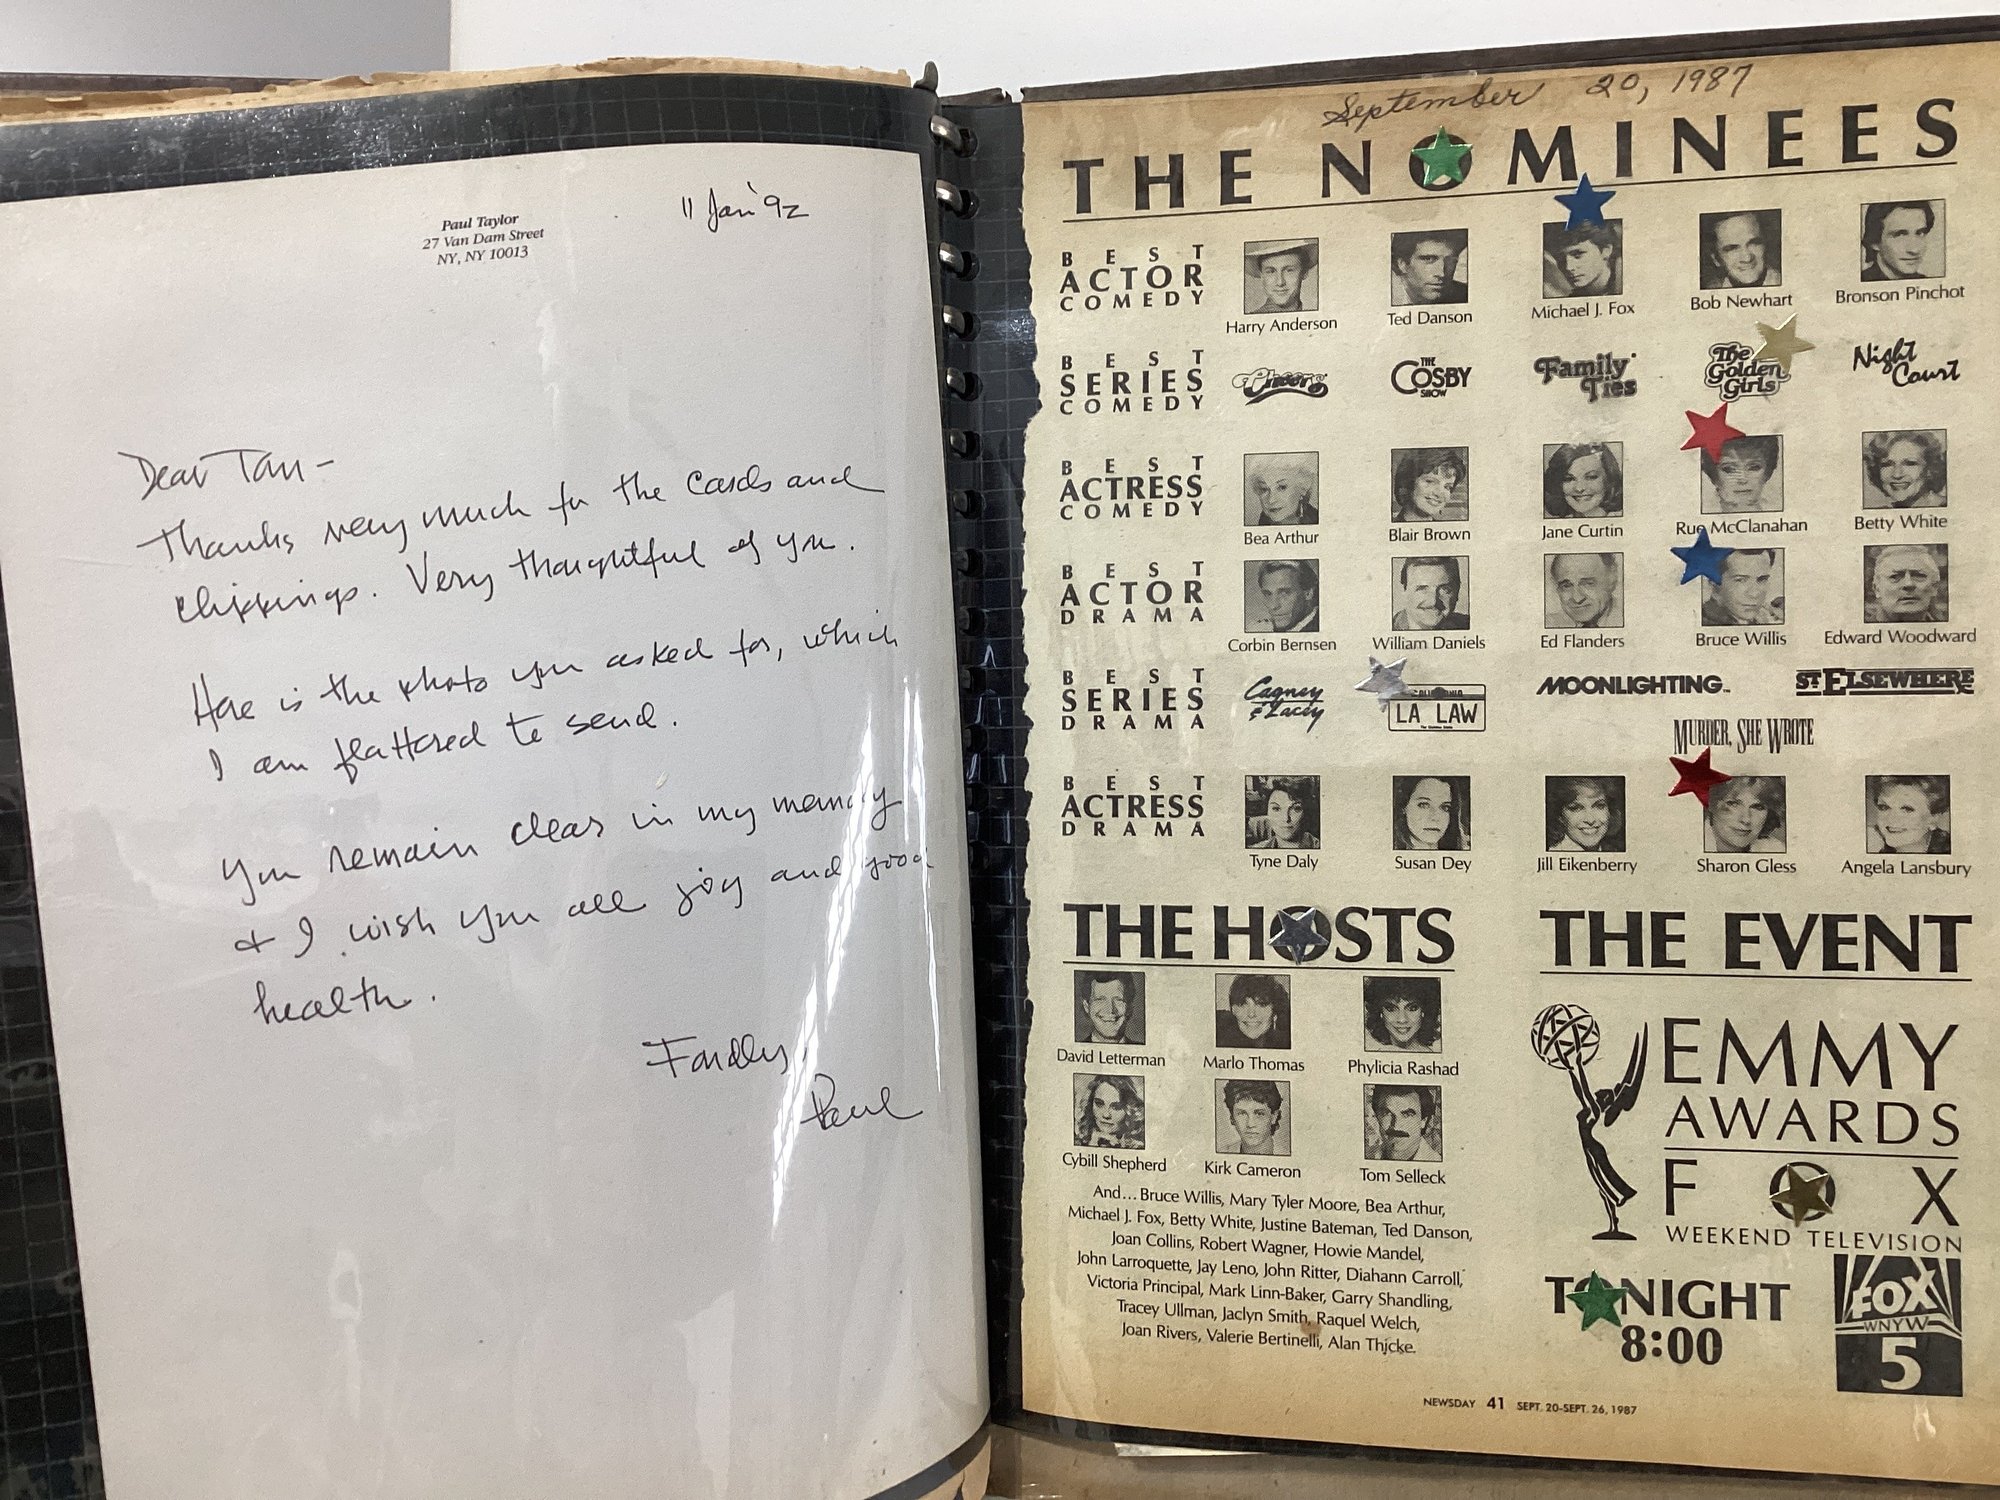 Paul Taylor
27 Van Dam Street
NY, NY 10013
11 Jan '92
Dear Tan -
Thanks very much for the cards and
clippings. Very thoughtful of you.
Here is the photo you asked for, which
I am flattered to send.
You remain clear in my memory
& I wish you all joy and good
health.
Fondly,
Paul
September 20, 1987
THE NOMINEES
BEST
ACTOR
COMEDY
Harry Anderson
Ted Danson
Michael J. Fox
Bob Newhart
Bronson Pinchot
BEST
SERIES
COMEDY
Cheers
THE
COSBY
SHOW
Family
Ties
The
Golden
Girls
Night
Court
BEST
ACTRESS
COMEDY
Bea Arthur
Blair Brown
Jane Curtin
Rue McClanahan
Betty White
BEST
ACTOR
DRAMA
Corbin Bernsen
William Daniels
Ed Flanders
Bruce Willis
Edward Woodward
BEST
SERIES
DRAMA
Cagney
& Lacey
CALIFORNIA
LA LAW
MOONLIGHTING
ST. ELSEWHERE
MURDER, SHE WROTE
BEST
ACTRESS
DRAMA
Tyne Daly
Susan Dey
Jill Eikenberry
Sharon Gless
Angela Lansbury
THE HOSTS
David Letterman
Marlo Thomas
Phylicia Rashad
Cybill Shepherd
Kirk Cameron
Tom Selleck
And...Bruce Willis, Mary Tyler Moore, Bea Arthur,
Michael J. Fox, Betty White, Justine Bateman, Ted Danson,
Joan Collins, Robert Wagner, Howie Mandel,
John Larroquette, Jay Leno, John Ritter, Diahann Carroll,
Victoria Principal, Mark Linn-Baker, Garry Shandling,
Tracey Ullman, Jaclyn Smith, Raquel Welch,
Joan Rivers, Valerie Bertinelli, Alan Thicke.
THE EVENT
EMMY
AWARDS
FOX
WEEKEND TELEVISION
TONIGHT
8:00
FOX
WNYW
5
NEWSDAY 41 SEPT. 20-SEPT. 26, 1987